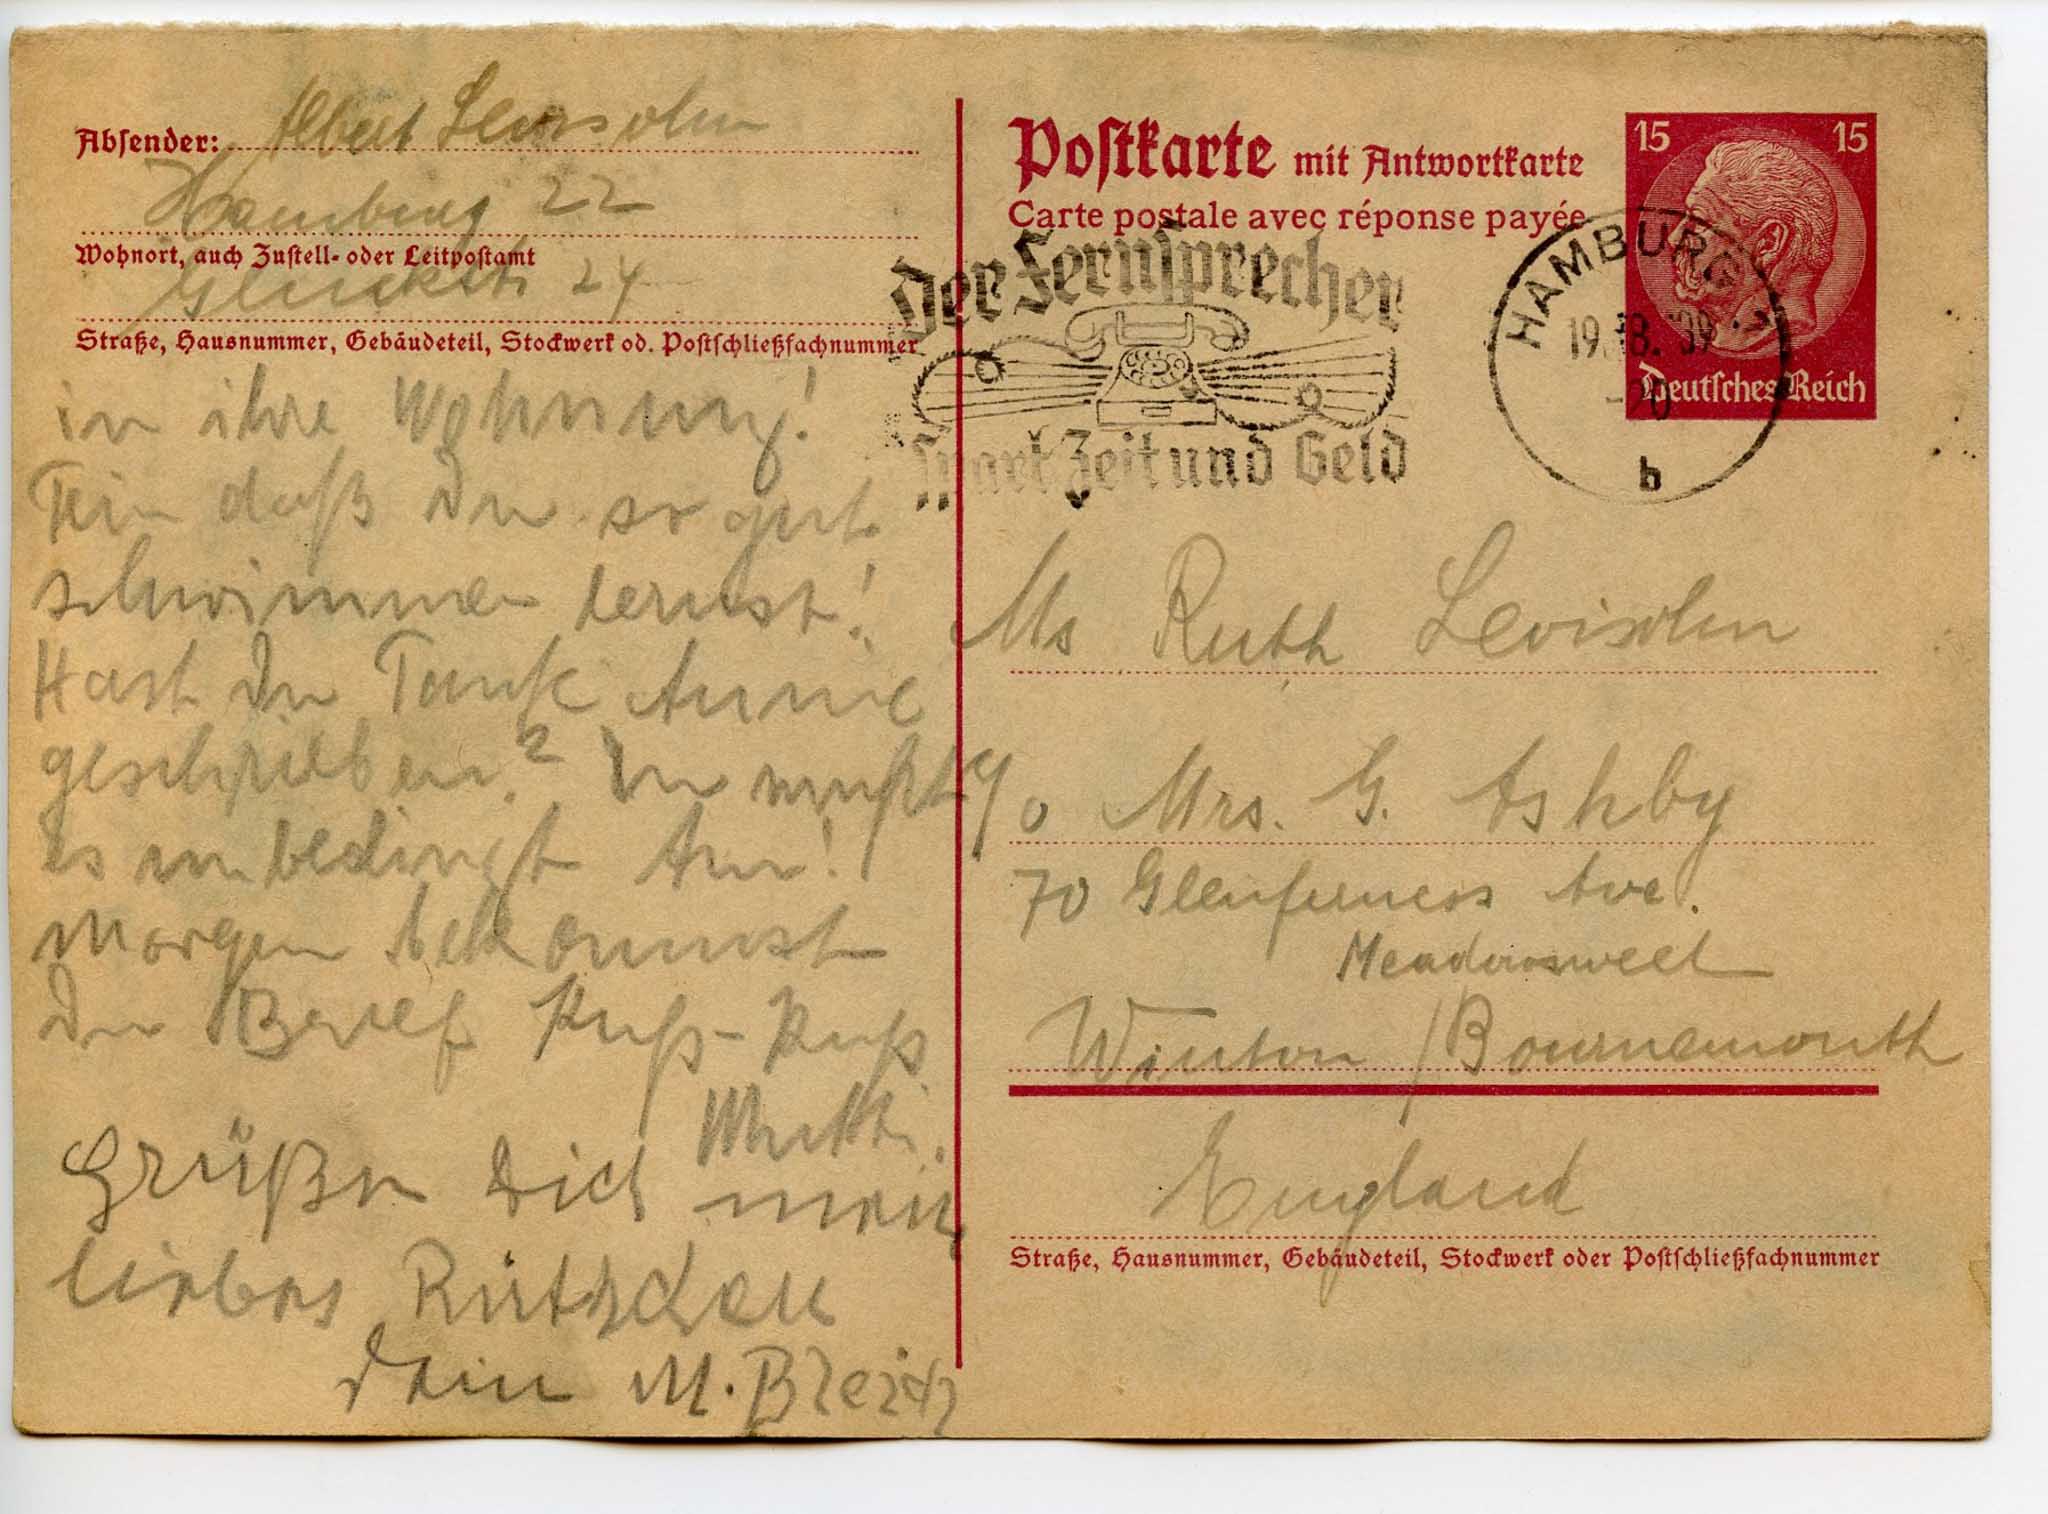 Absender: Albert Levisohn
Hamburg 22
Wohnort, auch Zustell- oder Leitpostamt
Gluckstr 24
Straße, Hausnummer, Gebäudeteil, Stockwerk od. Postschließfachnummer
in ihre Wohnung!
Fein daß Du so gut
schwimmen lernst!
Hast Du Tante Annie
geschrieben? Du mußt
es unbedingt tun!
Morgen bekommst
Du Brief Kuß-Kuß
Mutti.
Grüßn Dich mein
liebes Ruthchen
Dein M.
Postkarte mit Antwortkarte
Carte postale avec réponse payée
15 15
Deutsches Reich
Der Fernsprecher
spart Zeit und Geld
HAMBURG
19.8.39
-20
b
Ms Ruth Levisohn
c/o Mrs. G. Ashby
70 Glenferness Ave.
Meadowsweet
Winton / Bournemouth
England
Straße, Hausnummer, Gebäudeteil, Stockwerk oder Postschließfachnummer